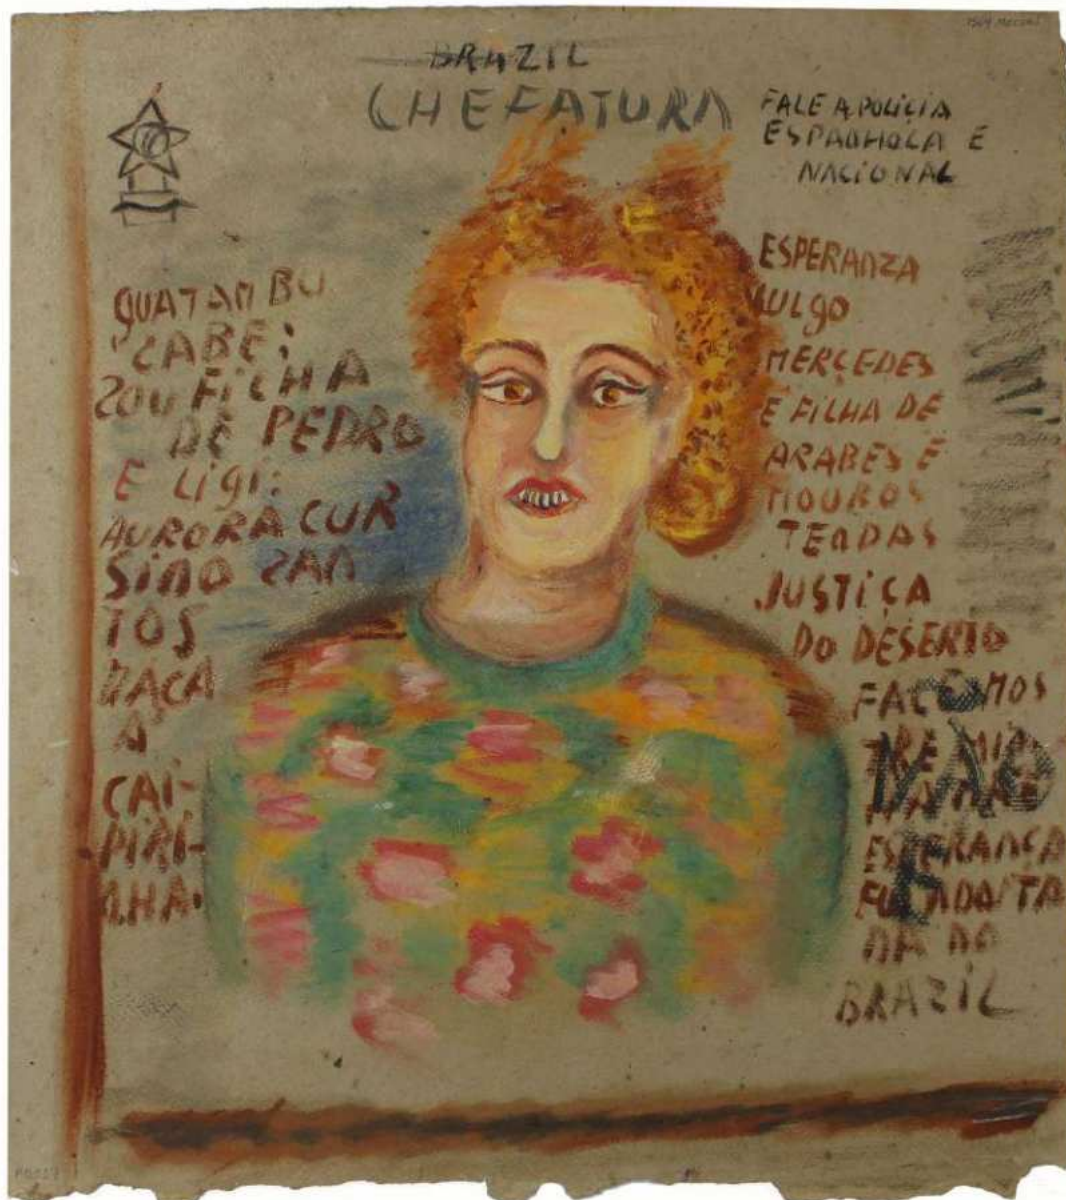 BRAZIL
CHEFATURA
FALE A POLICIA
ESPANHOLA E
NACIONAL
GUATAMBU
CABE:
ZOU FILHA
DE PEDRO
E LIGI:
AURORA CUR
SINO ZAN
TOS
DACA
A
CAI-
PIRI-
NHA.
ESPERANZA
VULGO
MERÇEDES
E FILHA DE
ARABES E
MOUROS
TENDAS
JUSTIÇA
DO DESERTO
FACEMOS
NÃO
ESPERANÇA
NA NO
BRAZIL